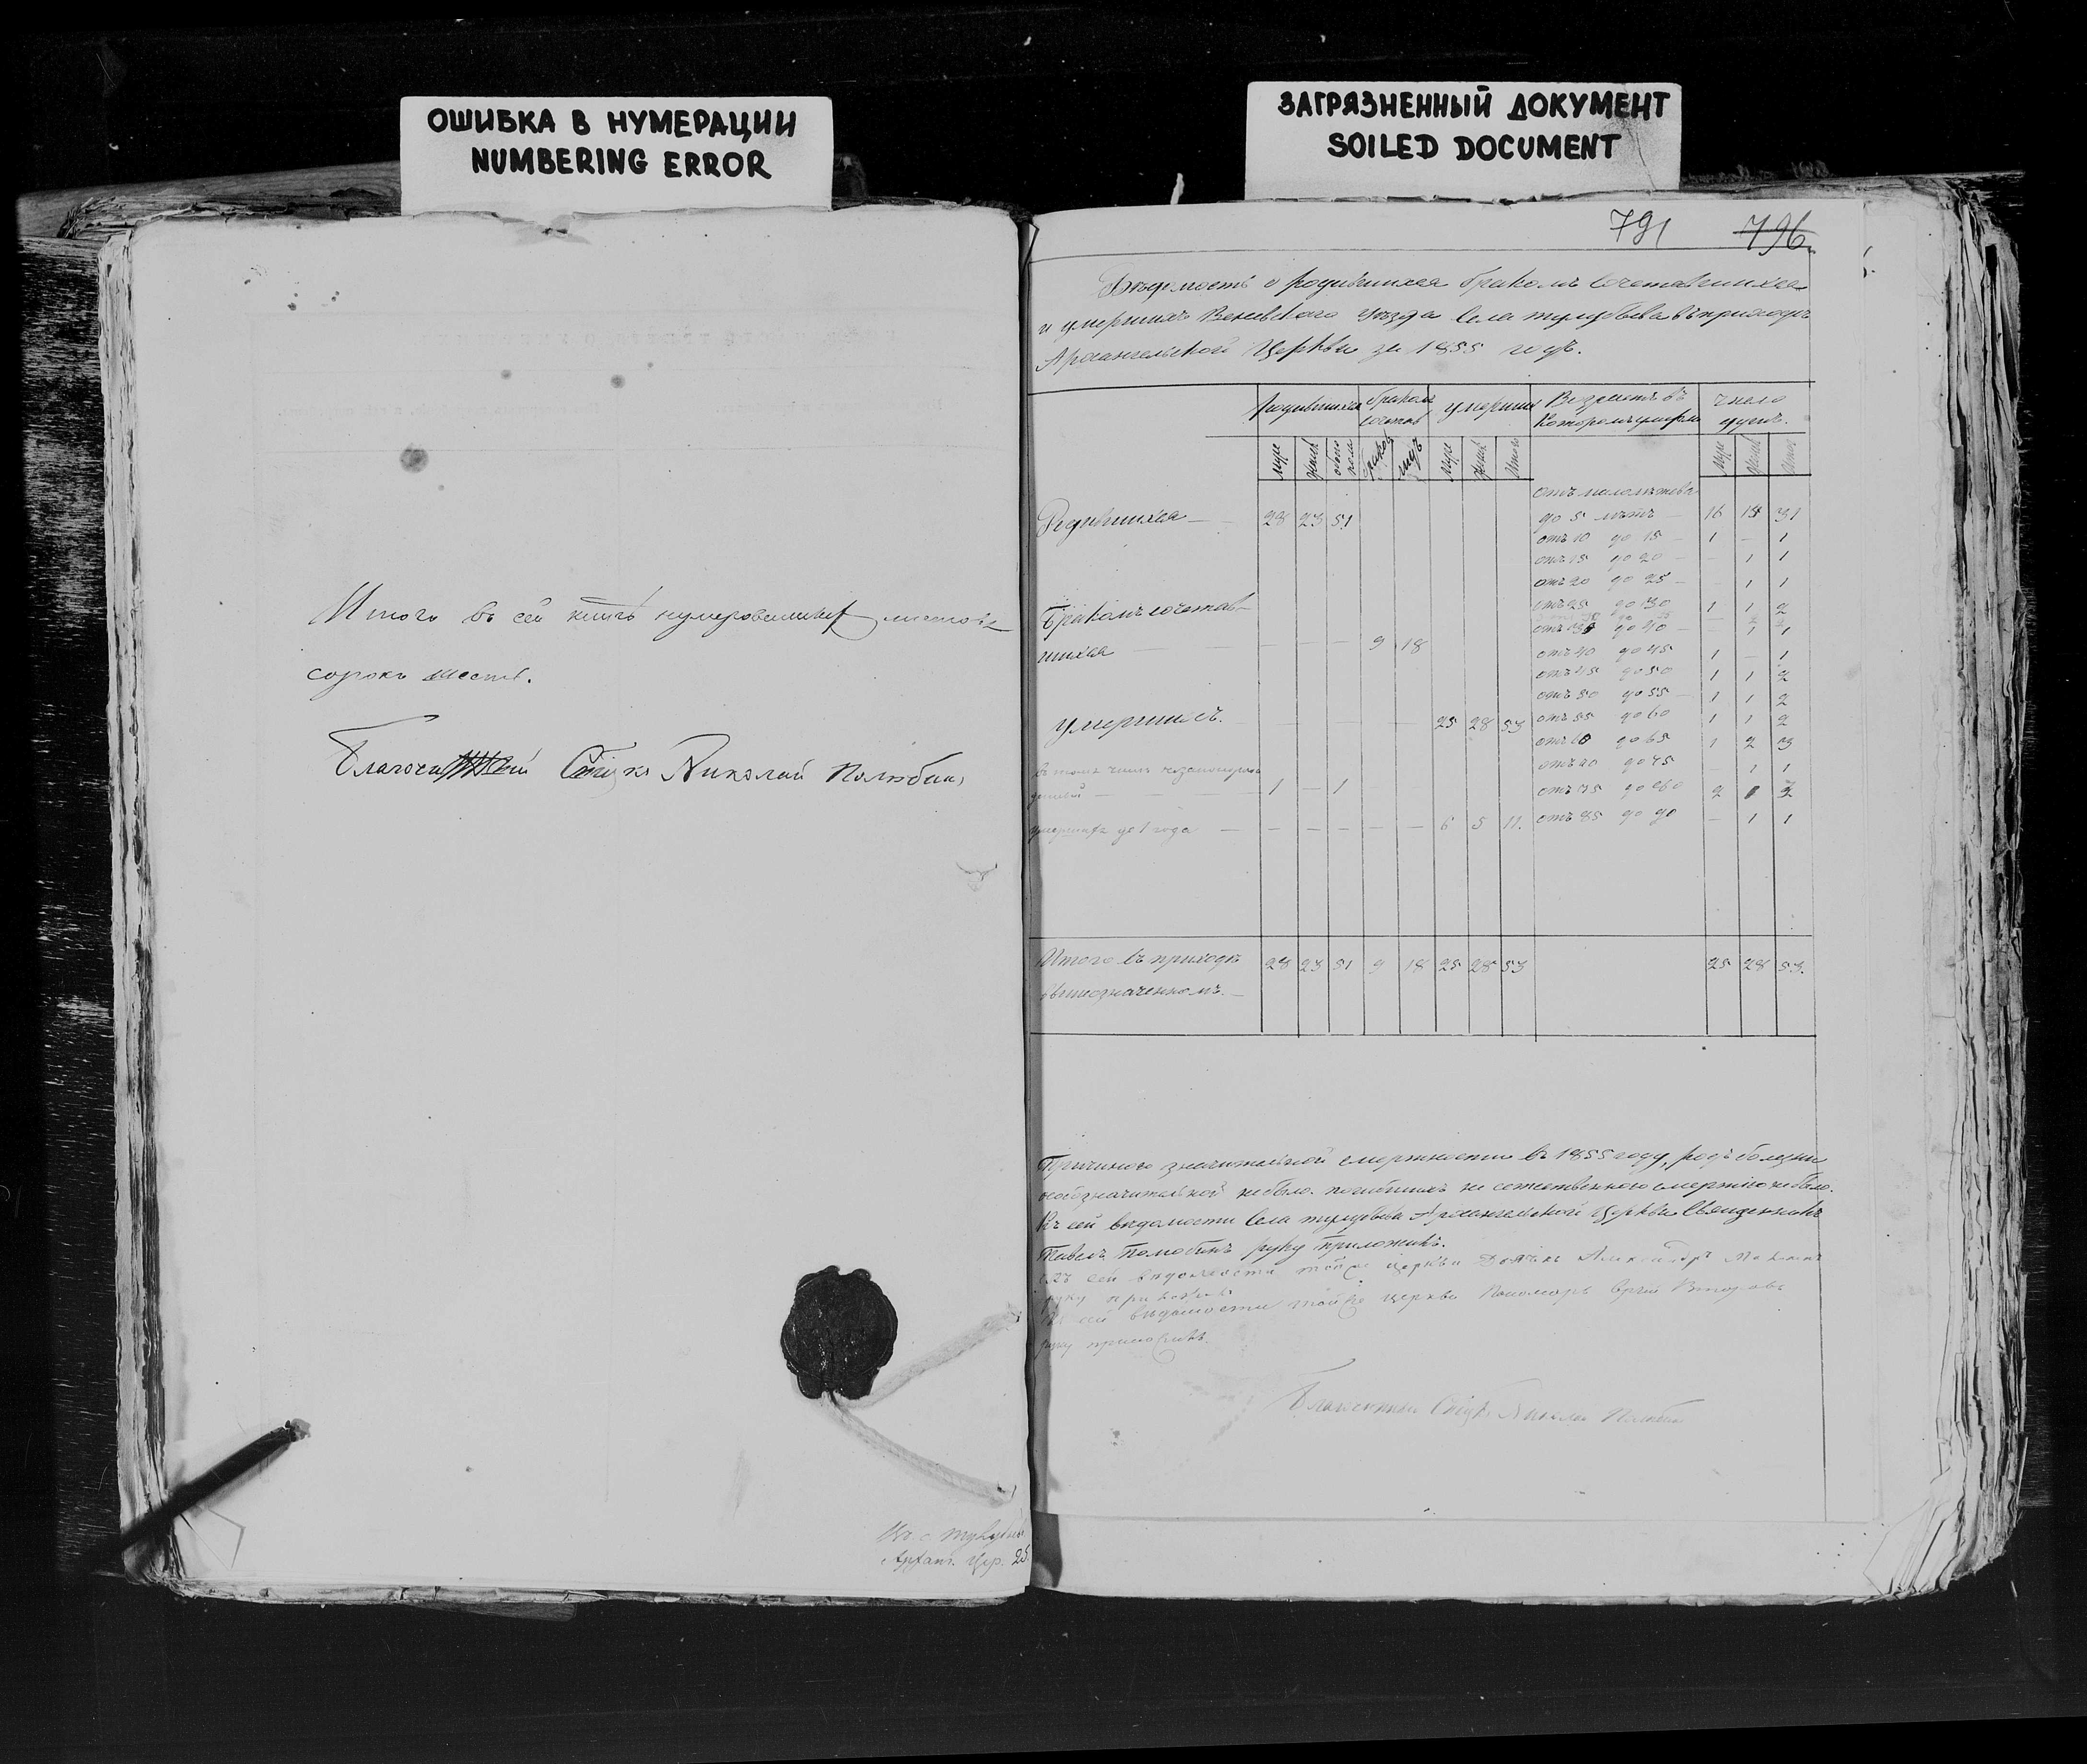 ОШИБКА В НУМЕРАЦИИ
NUMBERING ERROR
ЗАГРЯЗНЕННЫЙ ДОКУМЕНТ
SOILED DOCUMENT
Итого въ сей книгѣ нумерованныхъ листовъ
сорокъ шесть.
Благочинный Николай
791 796
Вѣдомость о родившихся бракомъ сочетавшихся
и умершихъ Веневскаго уѣзда села тулубьева въ приходѣ
Архангельской Церкви за 1855 годъ.
родившихся бракомъ сочетав умерших Возрастъ въ которомъ умерли число душъ.
муж женск обоего пола браковъ лицъ муж женск Итого муж женск Итого
отъ малолѣтства
Родившихся 28 23 51 до 5 лѣтъ 16 15 31
отъ 10 до 15 1 — 1
отъ 15 до 20 — 1 1
отъ 20 до 25 — 1 1
Бракомъ сочетав- отъ 25 до 30 1 1 2
до 40 — 1 1
шихся 9 18 отъ 40 до 45 1 — 1
отъ 45 до 50 1 1 2
отъ 50 до 55 1 1 2
умершихъ. 25 28 53 отъ 55 до 60 1 1 2
отъ 60 до 65 1 2 3
въ томъ числѣ незаконорож до 75 — 1 1
1 — 1 отъ 75 2
умершихъ до 1 года 6 5 11. отъ 85 до 90 — 1 1
Итого въ приходѣ 28 23 51 9 18 25 28 53 25 28 53.
вышеозначенномъ.
Причиною значительной смертности въ 1855 году, родъ болезни
особозначительной небыло. погибшихъ не естественною смертію небыло.
Къ сей вѣдомости села тулубьева Архангельской Церкви Священникъ
Павелъ руку приложилъ.
Къ сей вѣдомости тойже церкви Александръ
руку приложилъ
Къ сей вѣдомости тойже церкви Пономарь
руку приложилъ.
Благочинный Николай
Арханг. Цер.